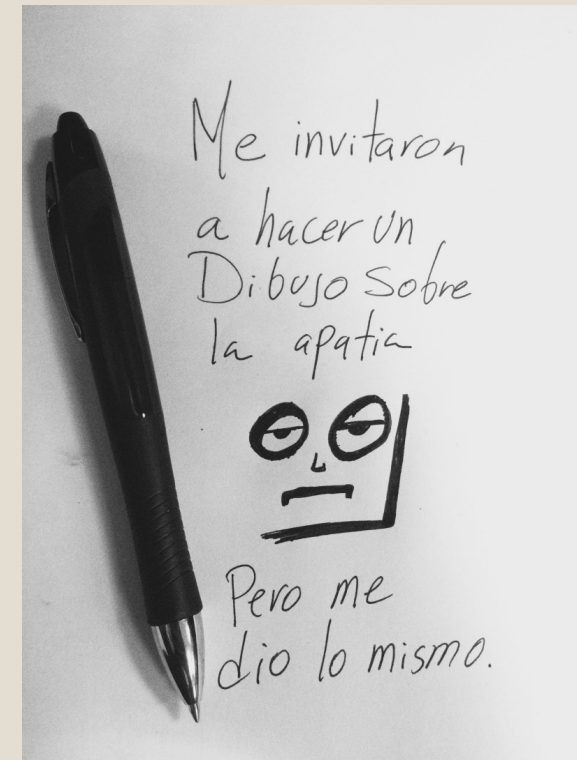 Me invitaron
a hacer un
Dibujo Sobre
la apatia
Pero me
dio lo mismo.